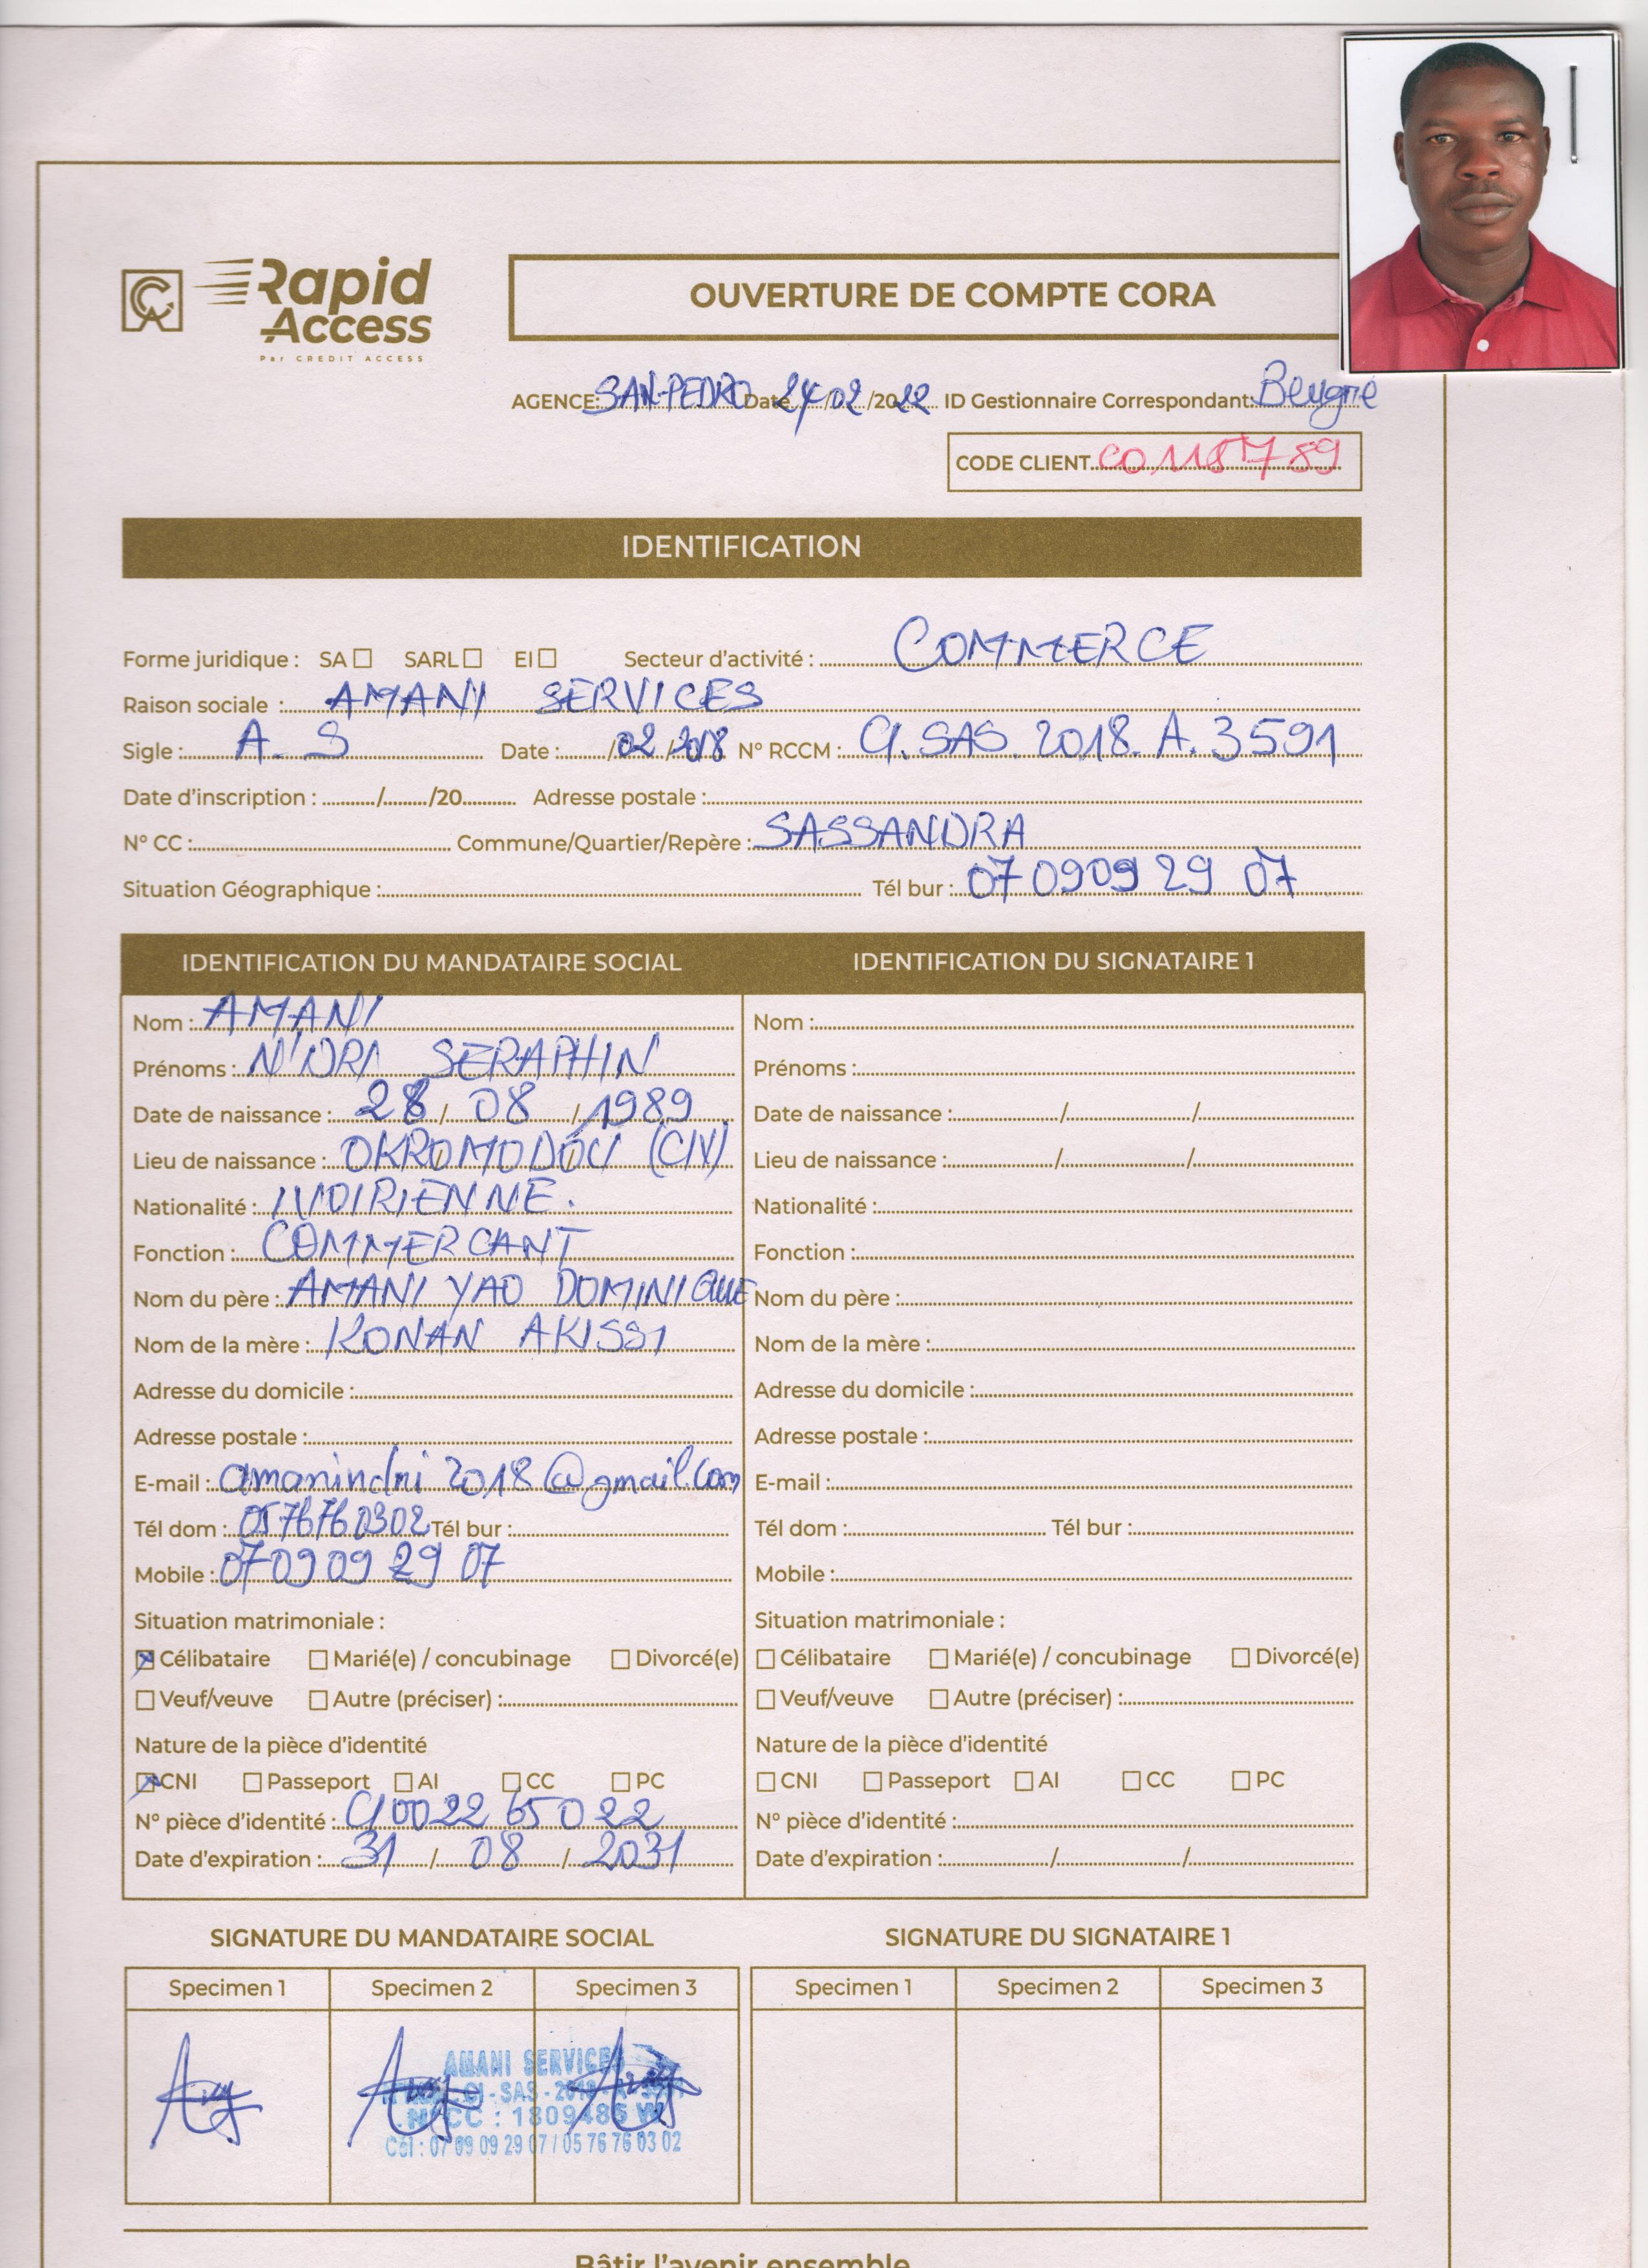 Rapid
Access
Par CREDIT ACCESS
OUVERTURE DE COMPTE CORA
AGENCE: SAN-PEDRO Date 24/02/2022 ID Gestionnaire Correspondant: Beugré
CODE CLIENT C01187789
IDENTIFICATION
Forme juridique : SA SARL EI Secteur d'activité : COMMERCE
Raison sociale : AMANI SERVICES
Sigle : A. S Date : / 02 / 2018 N° RCCM : CI. SAS. 2018. A. 3591
Date d'inscription : / /20 Adresse postale :
N° CC : Commune/Quartier/Repère : SASSANDRA
Situation Géographique : Tél bur : 07 0909 29 07
IDENTIFICATION DU MANDATAIRE SOCIAL
Nom : AMANI
Prénoms : N'DRI SERAPHIN
Date de naissance : 28 / 08 / 1989
Lieu de naissance : OKROMODOU (CIV)
Nationalité : IVOIRIENNE.
Fonction : COMMERCANT
Nom du père : AMANI YAO DOMINIQUE
Nom de la mère : KONAN AKISSI
Adresse du domicile :
Adresse postale :
E-mail : amanindri2018@gmail.com
Tél dom : 0576760302 Tél bur :
Mobile : 0709 09 29 07
Situation matrimoniale :
Célibataire Marié(e) / concubinage Divorcé(e)
Veuf/veuve Autre (préciser) :
Nature de la pièce d'identité
CNI Passeport AI CC PC
N° pièce d'identité : CI0022 65022
Date d'expiration : 31 / 08 / 2031
IDENTIFICATION DU SIGNATAIRE 1
Nom :
Prénoms :
Date de naissance : / /
Lieu de naissance : / /
Nationalité :
Fonction :
Nom du père :
Nom de la mère :
Adresse du domicile :
Adresse postale :
E-mail :
Tél dom : Tél bur :
Mobile :
Situation matrimoniale :
Célibataire Marié(e) / concubinage Divorcé(e)
Veuf/veuve Autre (préciser) :
Nature de la pièce d'identité
CNI Passeport AI CC PC
N° pièce d'identité :
Date d'expiration : / /
SIGNATURE DU MANDATAIRE SOCIAL
Specimen 1 Specimen 2 Specimen 3
AMANI SERVICES
CI - SAS - 2018 - A - 3591
N° CC : 1809485 W
Cél : 07 09 09 29 07 / 05 76 76 03 02
SIGNATURE DU SIGNATAIRE 1
Specimen 1 Specimen 2 Specimen 3
Bâtir l'avenir ensemble